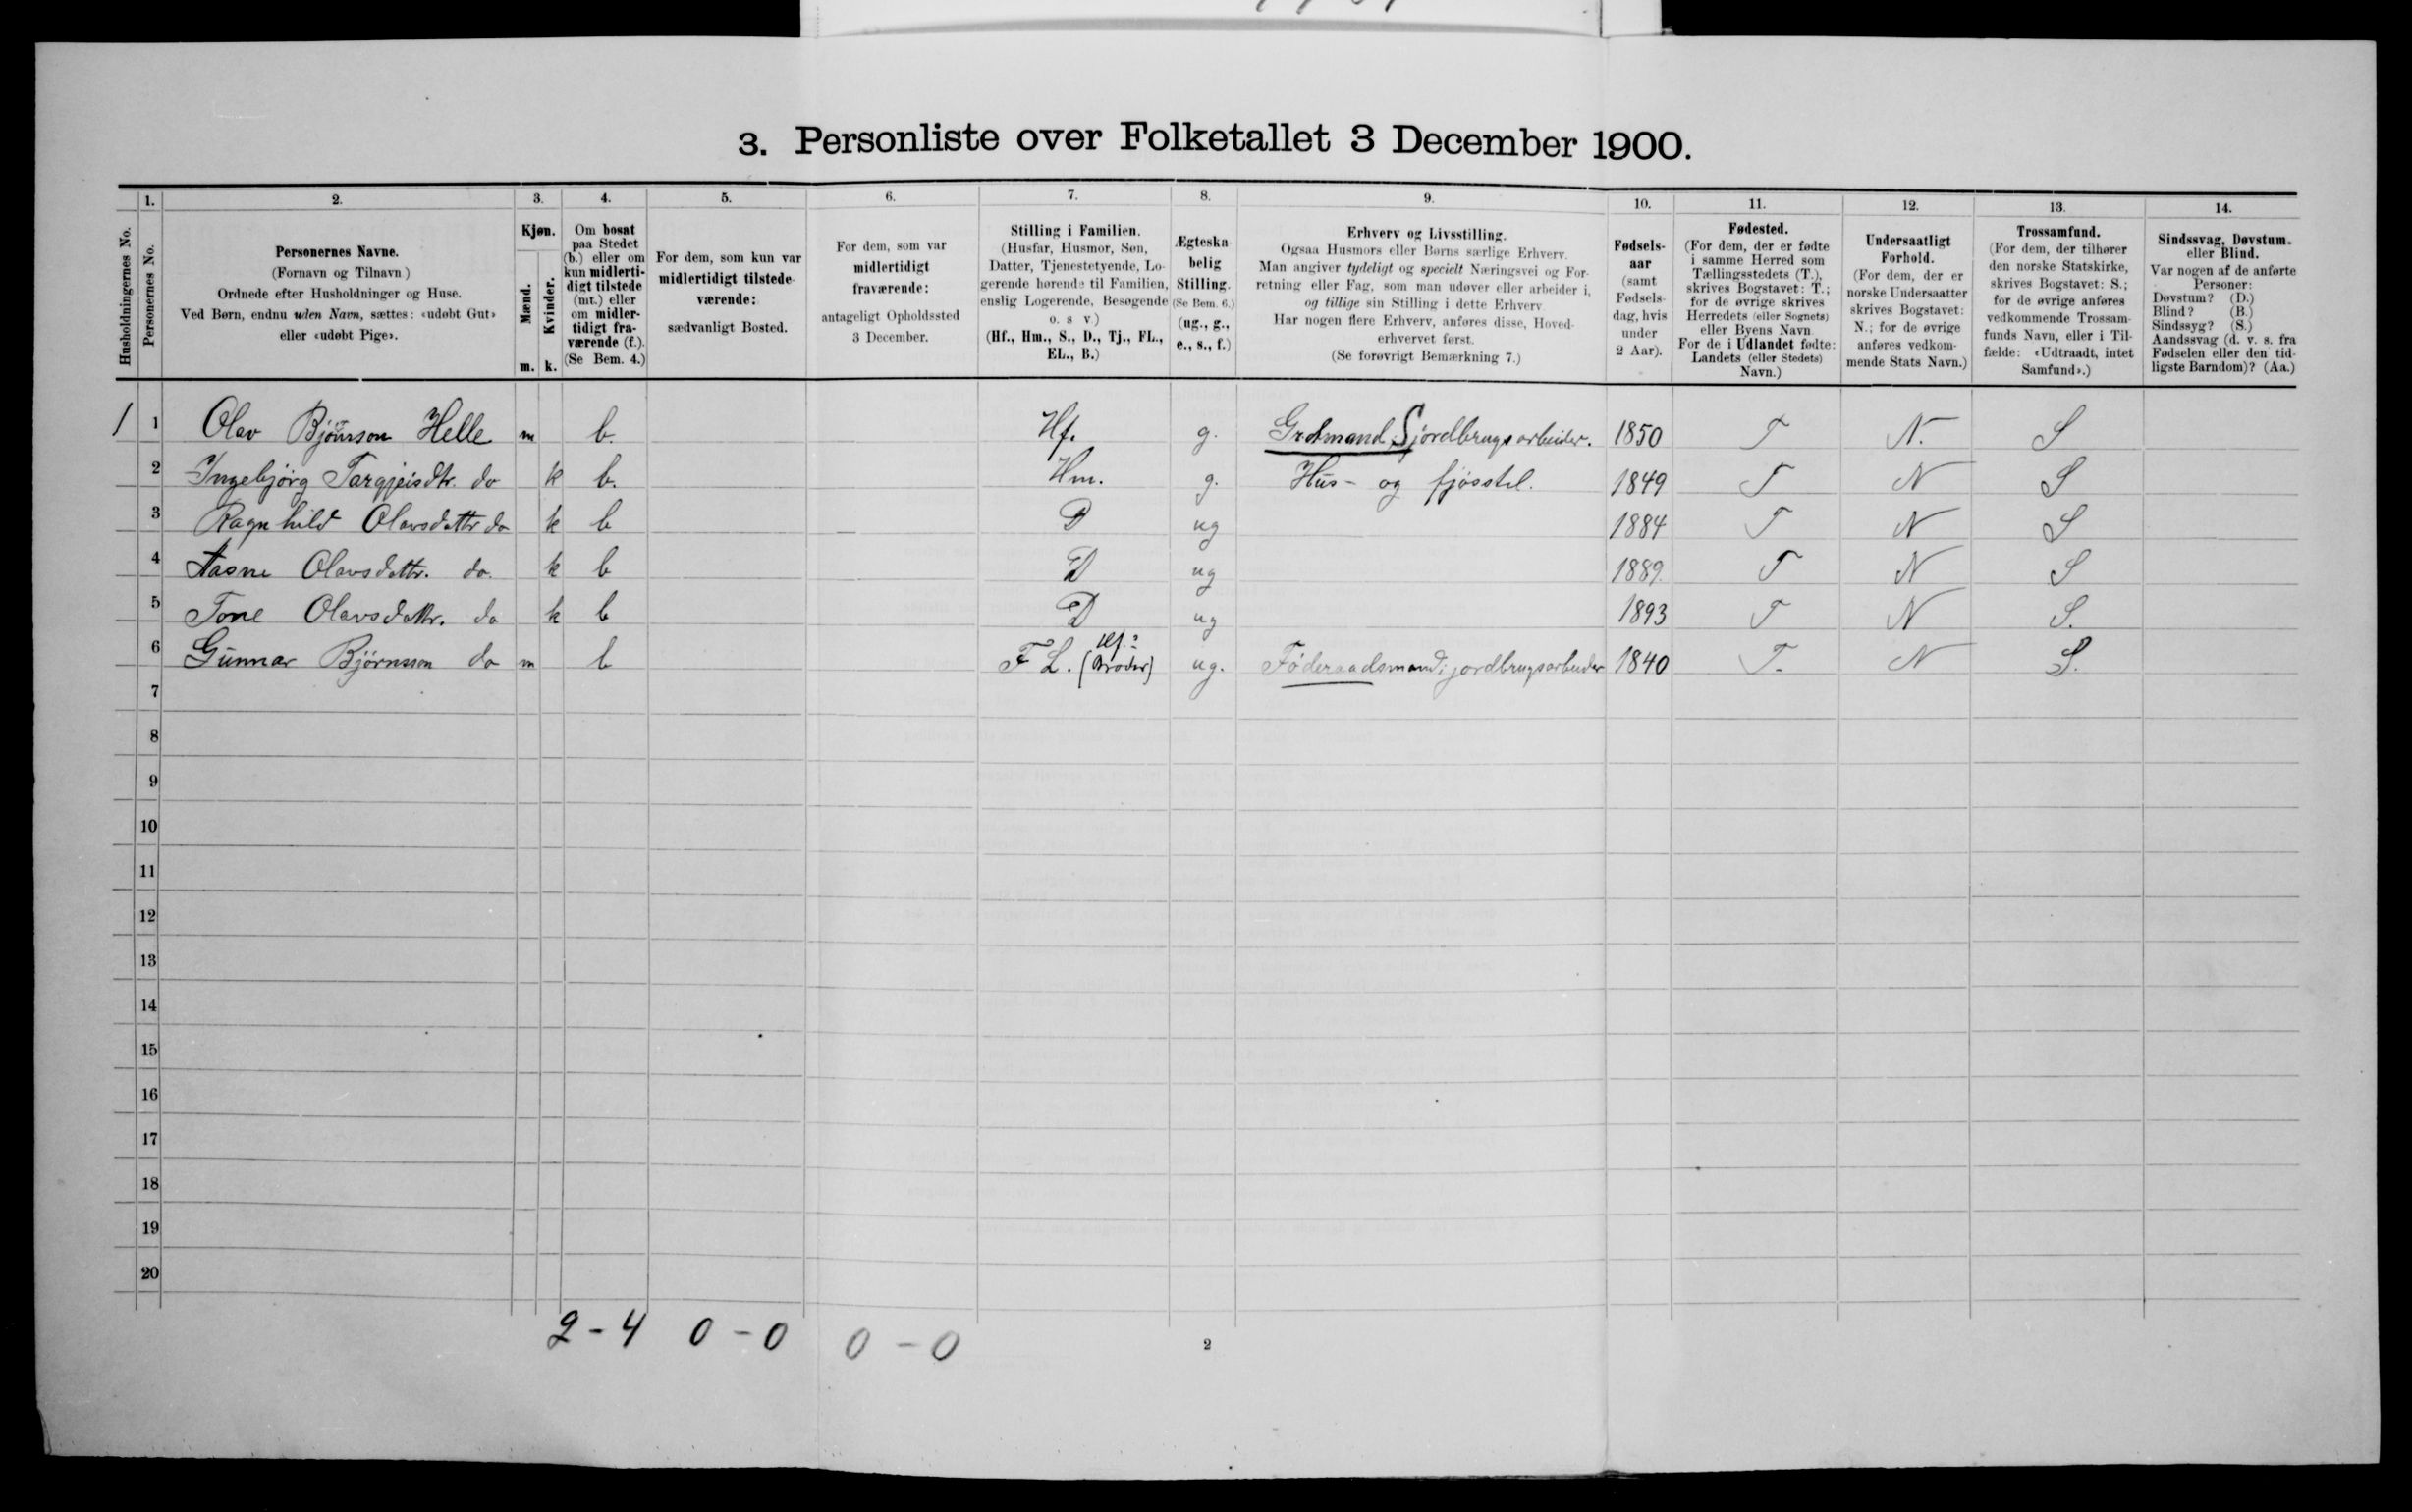 3. Personliste over Folketallet 3 December 1900.
Husholdningernes No.
1.
Personernes No.
2.
Personernes Navne.
(Fornavn og Tilnavn)
Ordnede efter Husholdninger og Huse.
Ved Børn, endnu uden Navn, sættes: «udøbt Gut»
eller «udøbt Pige».
3.
Kjøn.
Mænd.
Kvinder.
m. k.
4.
Om bosat
paa Stedet
(b.) eller om
kun midlerti-
digt tilstede
(mt.) eller
om midler-
tidigt fra-
værende (f.).
(Se Bem. 4.)
5.
For dem, som kun var
midlertidigt tilstede-
værende:
sædvanligt Bosted.
6.
For dem, som var
midlertidigt
fraværende:
antageligt Opholdssted
3 December.
7.
Stilling i Familien.
(Husfar, Husmor, Søn,
Datter, Tjenestetyende, Lo-
gerende hørende til Familien,
enslig Logerende, Besøgende
o. s v)
(Hf., Hm., S., D., Tj., FL.,
EL., B.)
8.
Ægteska-
belig
Stilling.
(Se Bem. 6.)
(ug., g.,
e., s., f.)
9.
Erhverv og Livsstilling.
Ogsaa Husmors eller Børns særlige Erhverv.
Man angiver tydeligt og specielt Næringsvei og For-
retning eller Fag, som man udøver eller arbeider i,
og tillige sin Stilling i dette Erhverv.
Har nogen flere Erhverv, anføres disse, Hoved-
erhvervet først.
(Se forøvrigt Bemærkning 7.)
10.
Fødsels-
aar
(samt
Fødsels-
dag, hvis
under
2 Aar).
11.
Fødested.
(For dem, der er fødte
i samme Herred som
Tællingsstedets (T.),
skrives Bogstavet: T.;
for de øvrige skrives
Herredets (eller Sognets)
eller Byens Navn
For de i Udlandet fødte:
Landets (eller Stedets)
Navn.)
12.
Undersaatligt
Forhold.
(For dem, der er
norske Undersaatter
skrives Bogstavet:
N.; for de øvrige
anføres vedkom-
mende Stats Navn.)
13.
Trossamfund.
(For dem, der tilhører
den norske Statskirke,
skrives Bogstavet: S.;
for de øvrige anføres
vedkommende Trossam-
funds Navn, eller i Til-
fælde: «Udtraadt, intet
Samfund».)
14.
Sindssvag, Døvstum.
eller Blind.
Var nogen af de anførte
Personer:
Døvstum? (D.)
Blind? (B.)
Sindssyg? (S.)
Aandssvag (d. v. s. fra
Fødselen eller den tid-
ligste Barndom)? (Aa.)
1 1 Olav Bjørnson Helle m b. Hf. g. Grdmand, jordbrugsarbeider. 1850 T N. S
2 Ingebjørg Targjeisdtr. do k b. Hm. g. Hus- og fjøsstel. 1849 T N S
3 Ragnhild Olavsdattr do k b D ug 1884 T N S
4 Aasne Olavsdattr. do. k b D ug 1889. T N S
5 Tone Olavsdattr. do k b D ug 1893 T N S.
6 Gunnar Bjørnsson do m b F L. (Hf:s Broder) ug. Føderaadsmand; jordbrugsarbeider 1840 T. N S.
7
8
9
10
11
12
13
14
15
16
17
18
19
20
2 - 4 0 - 0 0 - 0
2